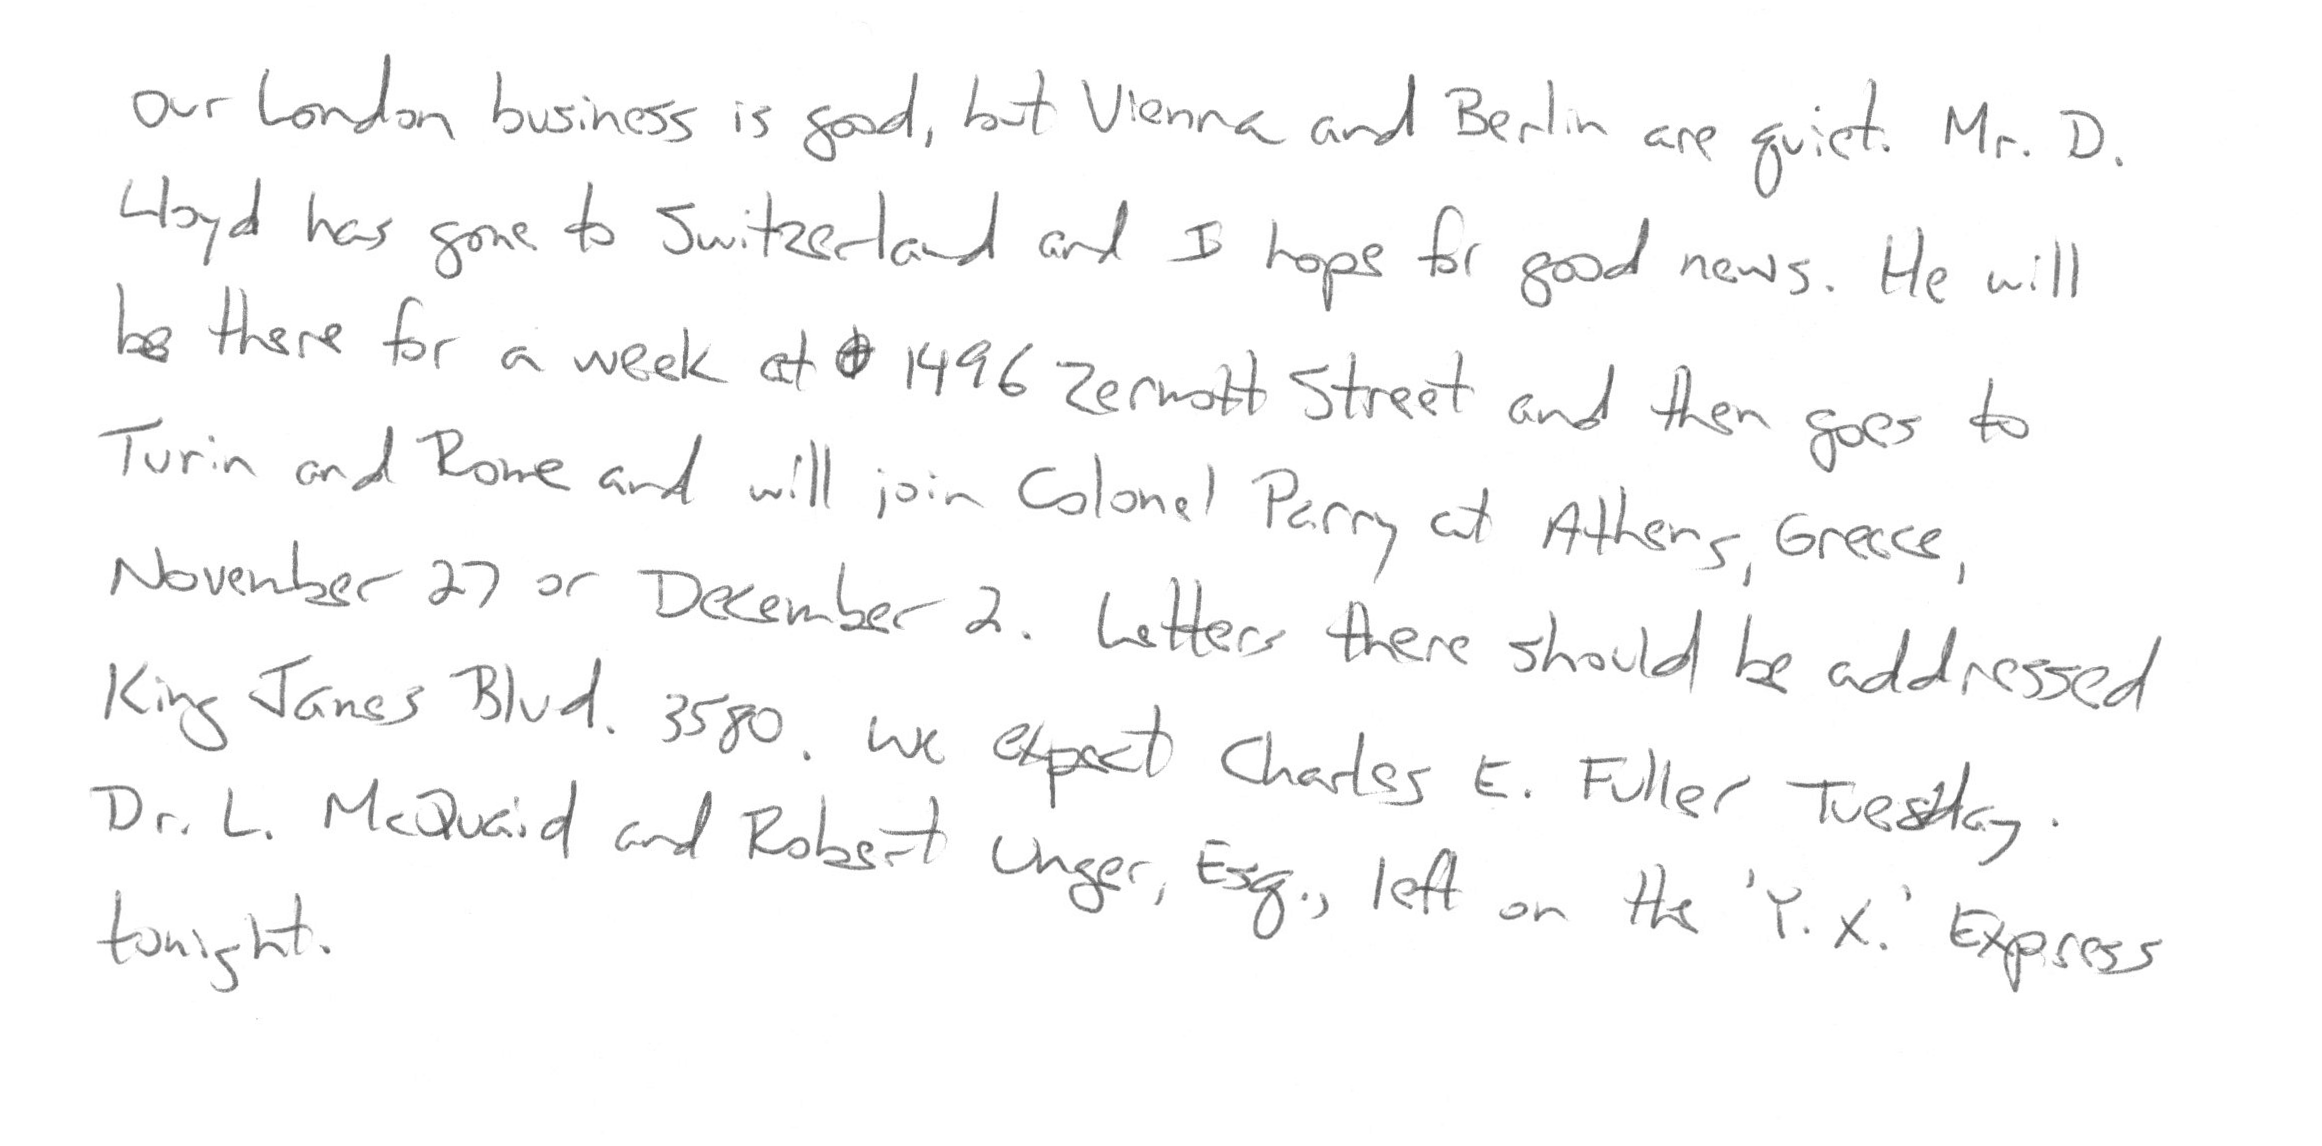 Our London business is good, but Vienna and Berlin are quiet. Mr. D.
Lloyd has gone to Switzerland and I hope for good news. He will
be there for a week at 1496 Zermott Street and then goes to
Turin and Rome and will join Colonel Parry at Athens, Greece,
November 27 or December 2. Letters there should be addressed
King James Blvd. 3580. We expect Charles E. Fuller Tuesday.
Dr. L. McQuaid and Robert Unger, Esq., left on the 'Y. X.' Express
tonight.